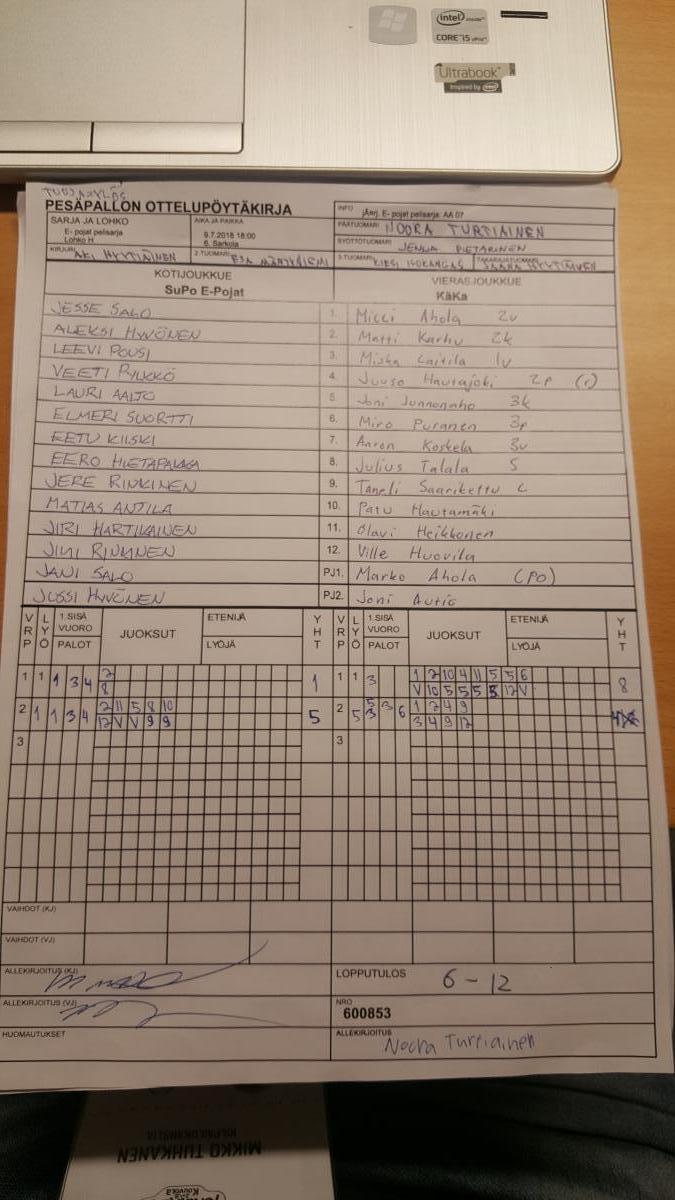 intel inside
CORE i5 vPro
Ultrabook
Inspired by intel
PESÄPALLON OTTELUPÖYTÄKIRJA
SARJA JA LOHKO
E- pojat pelisarja
Lohko H
AIKA JA PAIKKA
9.7.2018 18:00
6. Sarkola
INFO jÄnj. E- pojat pelisarja: AA 07
PÄÄTUOMARI NOORA TURTIAINEN
SYÖTTÖTUOMARI JENNA PIETARINEN
KIRJURI AKI HYYTIÄINEN
2-TUOMARI ESA MÄNTYNIEMI
3-TUOMARI KIRSI ISOKANGAS
TAKARAJATUOMARI
KOTIJOUKKUE
SuPo E-Pojat
VIERASJOUKKUE
KäKa
JESSE SALO 1. Micci Ahola 2v
ALEKSI HYVÖNEN 2. Matti Karhu 2k
LEEVI POUSI 3. Miska Laitila 1v
VEETI PYLKKÖ 4. Juuso Hautajoki 2p
LAURI AALTO 5. Joni Junnonaho 3k
ELMERI SUORTTI 6. Miro Puranen 3p
EETU KIISKI 7. Aaron Koskela 3v
EERO HIETAPAKKA 8. Julius Talala S
JERE RINKINEN 9. Taneli Saarikettu L
MATIAS ANTILA 10. Patu Hautamäki
JIRI HARTIKAINEN 11. Olavi Heikkonen
JIMI RINKINEN 12. Ville Huovila
JANI SALO PJ1. Marko Ahola (PO)
JUSSI HYVÖNEN PJ2. Joni Autio
VRP LYÖ 1.SISÄ VUORO PALOT JUOKSUT ETENIJÄ LYÖJÄ YHT VRP LYÖ 1.SISÄ VUORO PALOT JUOKSUT ETENIJÄ LYÖJÄ YHT
1 1 1 3 4 2 1 1 1 3 1 2 10 4 11 5 5 6 8
8 V 10 5 5 5 5 12 V
2 1 1 3 4 2 11 5 8 10 5 2 5 3 6 1 2 4 9
12 V V 9 9 3 4 9 12
3 3
VAIHDOT (KJ)
VAIHDOT (VJ)
ALLEKIRJOITUS (KJ)
LOPPUTULOS 6 - 12
ALLEKIRJOITUS (VJ)
NRO
600853
HUOMAUTUKSET
ALLEKIRJOITUS Noora Turtiainen
KILPAILUKANSLIA
MIKKO TUHKANEN
Kouvola